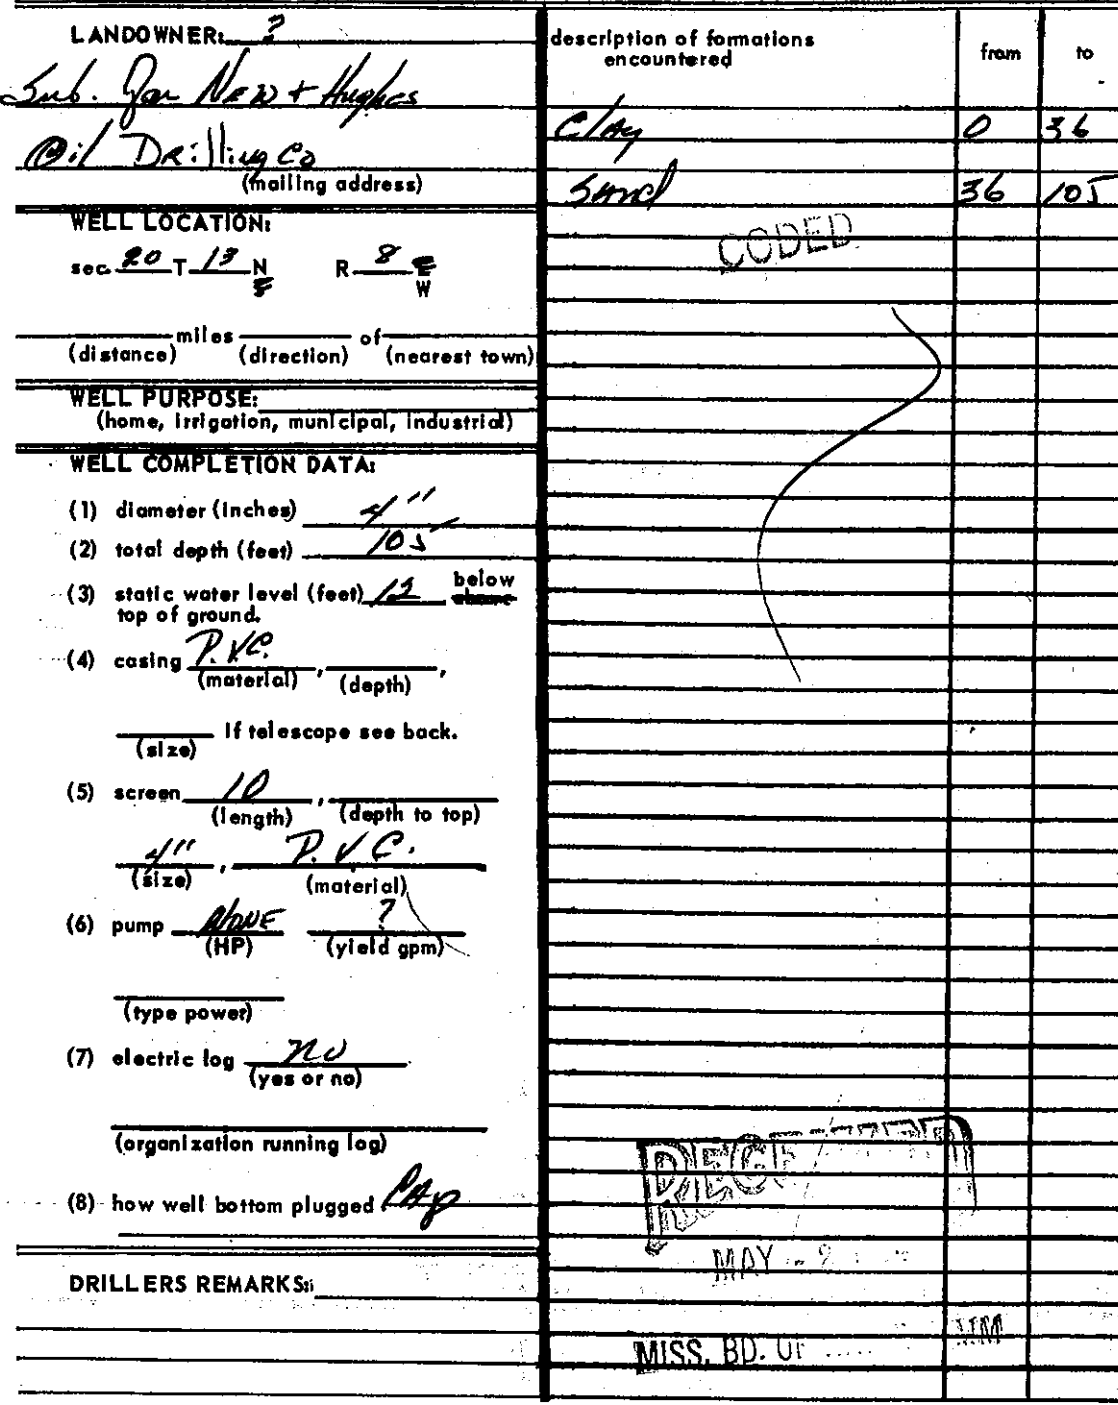 LANDOWNER: ?
Sub. for New + Hughes
Oil Drilling Co
(mailing address)
WELL LOCATION:
sec. 20 T 13 N R 8 E
S W
miles of
(distance) (direction) (nearest town)
WELL PURPOSE:
(home, irrigation, municipal, industrial)
WELL COMPLETION DATA:
(1) diameter (inches) 4"
(2) total depth (feet) 105
(3) static water level (feet) 12 below
above
top of ground.
(4) casing P.V.C. , ,
(material) (depth)
If telescope see back.
(size)
(5) screen 10 ,
(length) (depth to top)
4" , P.V.C.
(size) (material)
(6) pump NONE ?
(HP) (yield gpm)
(type power)
(7) electric log no
(yes or no)
(organization running log)
(8) how well bottom plugged Cap
DRILLERS REMARKS:
description of formations from to
encountered
Clay 0 36
Sand 36 105
CODED
MAY - 2
MISS. BD. OF